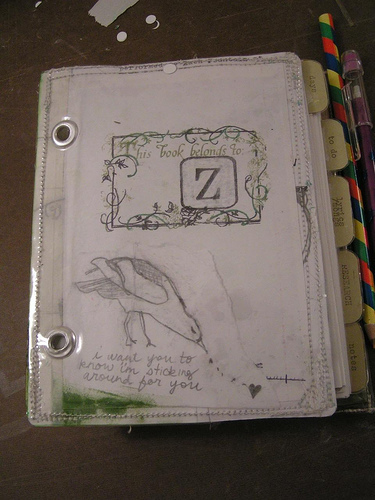 This book belongs to:
Z
i want you to
know i'm sticking
around for you
to do
notes